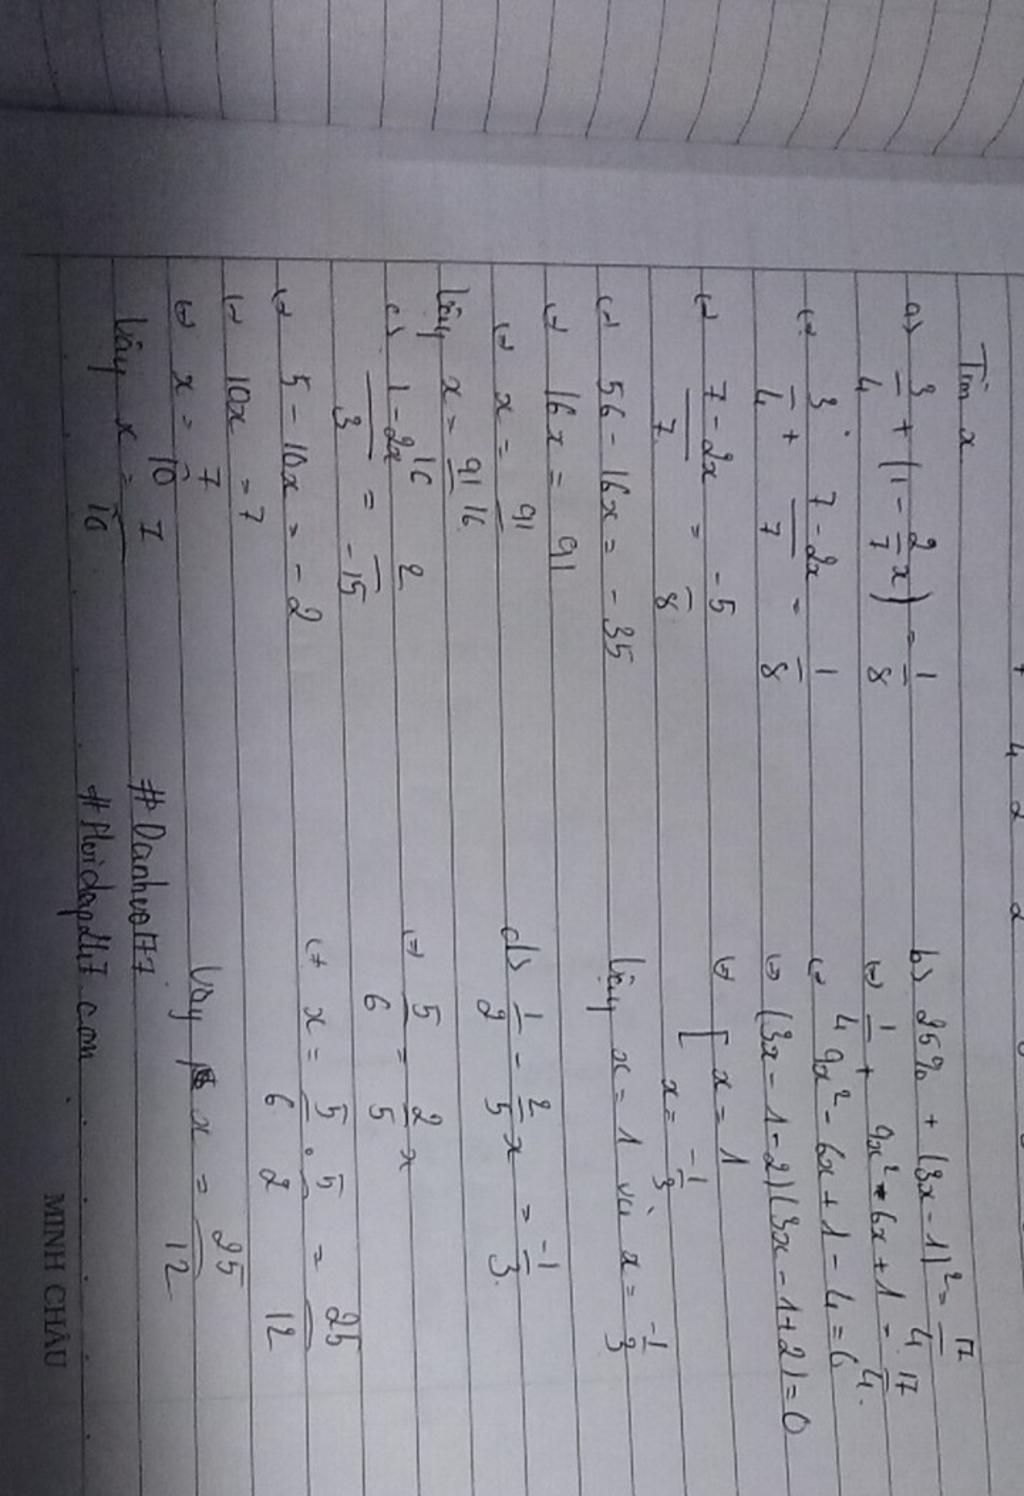 Tìm x
a) 3/4 + (1 - 2/7 x) = 1/8
(=) 3/4 + (7 - 2x)/7 = 1/8
(=) (7 - 2x)/7 = -5/8
(=) 56 - 16x = -35
(=) 16x = 91
(=) x = 91/16
Vậy x = 91/16
c) (1 - 2x)/3 = 2/-15
(=) 5 - 10x = -2
(=) 10x = 7
(=) x = 7/10
Vậy x = 7/10
b) 25% + (3x - 1)² = 17/4
(=) 1/4 + 9x² - 6x + 1 = 17/4
(=) 9x² - 6x + 1 - 4 = 0
(=) (3x - 1 - 2)(3x - 1 + 2) = 0
(=) [ x = 1
x = -1/3
Vậy x = 1 và x = -1/3
d) 1/2 - 2/5 x = -1/3
(=) 5/6 = 2/5 x
(=) x = 5/6 . 5/2 = 25/12
Vậy x = 25/12
#Danhvo177
#Hoidap247.com
MINH CHÂU